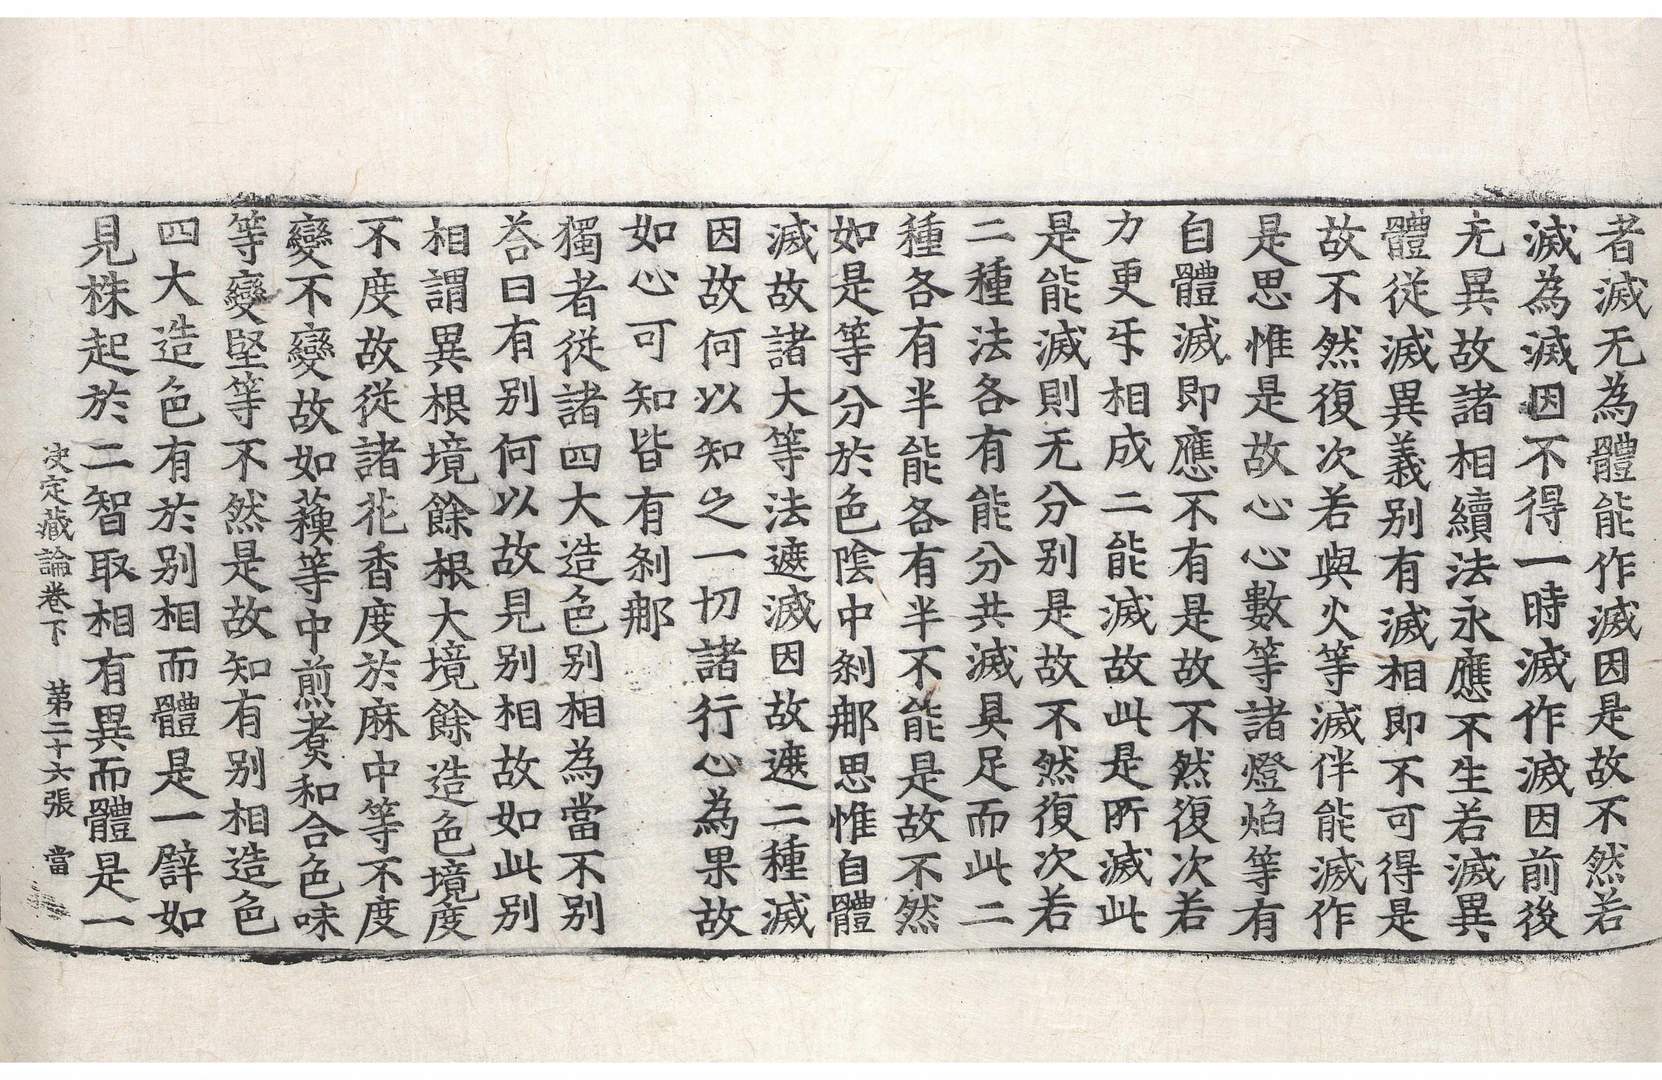 者滅无為體能作滅因是故不然若
滅為滅因不得一時滅作滅因前後
无異故諸相續法永應不生若滅異
體從滅異義別有滅相即不可得是
故不然復次若與火等滅伴能滅作
是思惟是故心心數等諸燈焰等有
自體滅即應不有是故不然復次若
力更牙相成二能滅故此是所滅此
是能滅則无分別是故不然復次若
二種法各有能分共滅具足而此二
種各有半能各有半不能是故不然
如是等分於色陰中剎那思惟自體
滅故諸大等法遮滅因故遮二種滅
因故何以知之一切諸行心為果故
如心可知皆有剎那
獨者從諸四大造色別相為當不別
荅曰有別何以故見別相故如此別
相謂異根境餘根大境餘造色境度
不度故從諸花香度於麻中等不度
變不變故如蘓等中煎煑和合色味
等變堅等不然是故知有別相造色
四大造色有於別相而體是一譬如
見株起於二智取相有異而體是一
决定藏論卷下　第二十六張　當